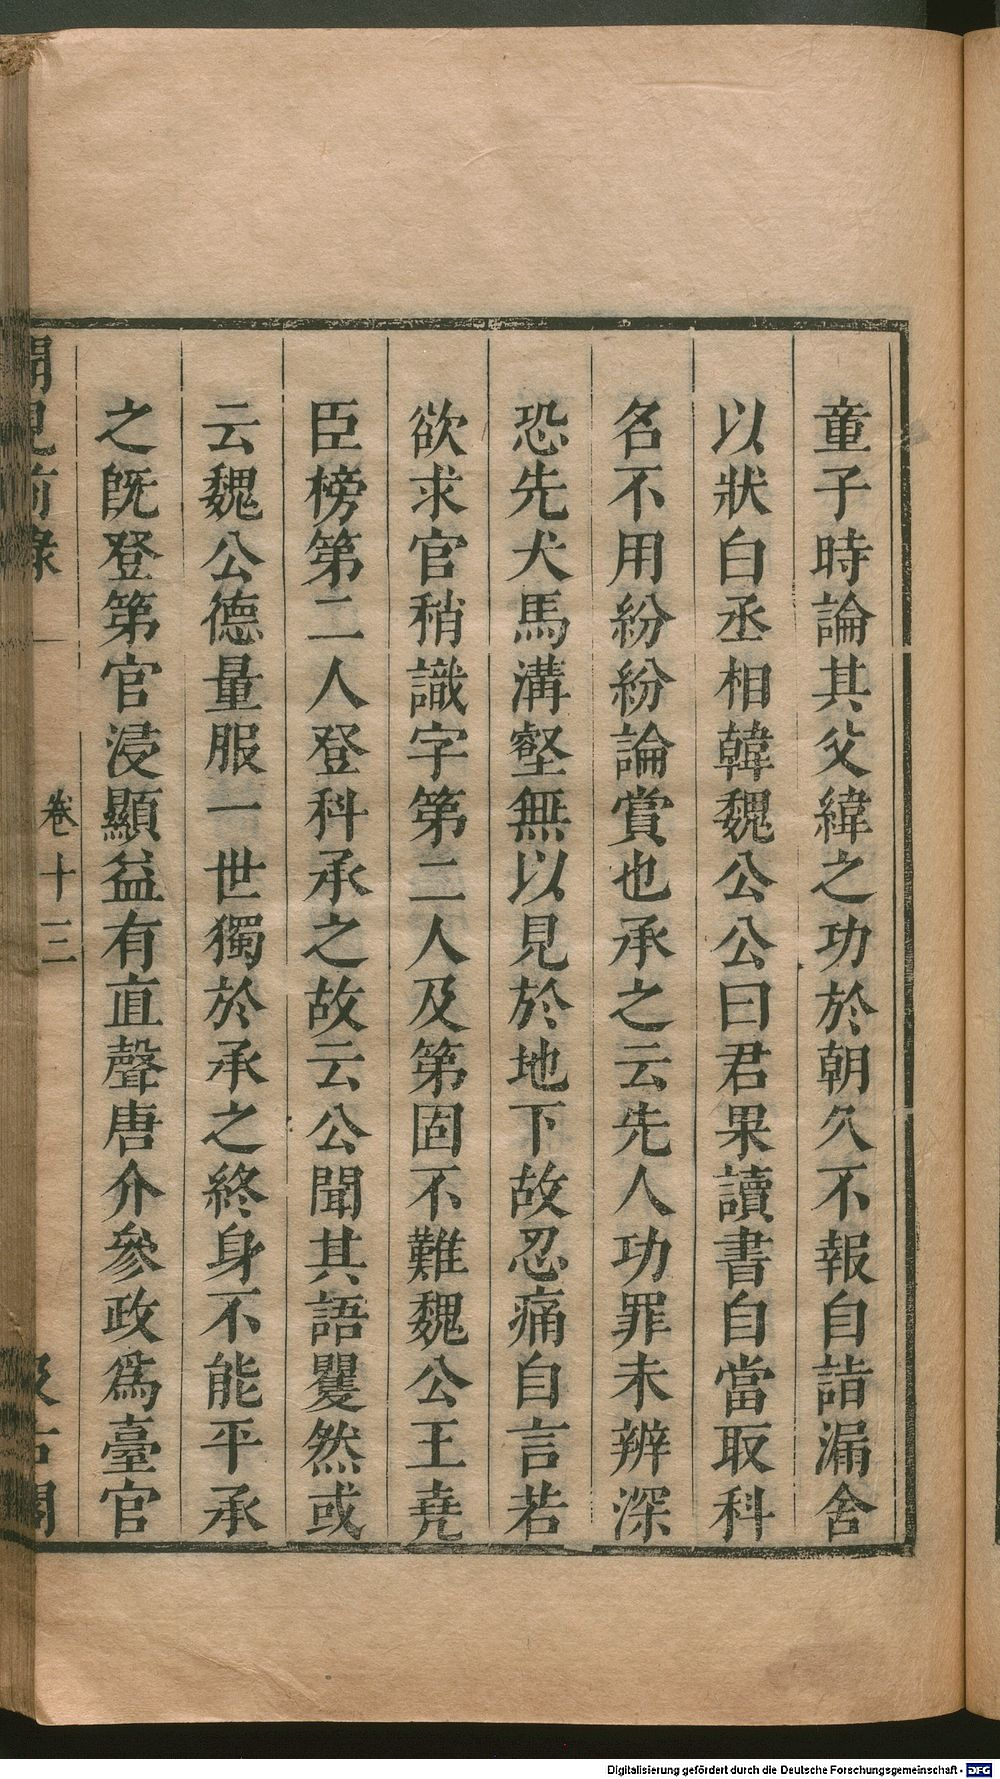 童子時論其父緯之功於朝久不報自詣漏舍
以狀白丞相韓魏公公曰君果讀書自當取科
名不用紛紛論賞也承之云先人功罪未辨深
恐先犬馬溝壑無以見於地下故忍痛自言若
欲求官稍識字第二人及第固不難魏公王堯
臣榜第二人登科承之故云公聞其語矍然或
云魏公德量服一世獨於承之終身不能平承
之旣登第官浸顯益有直聲唐介參政爲臺官
聞見前錄 卷十三 汲古閣
Digitalisierung gefördert durch die Deutsche Forschungsgemeinschaft - DFG